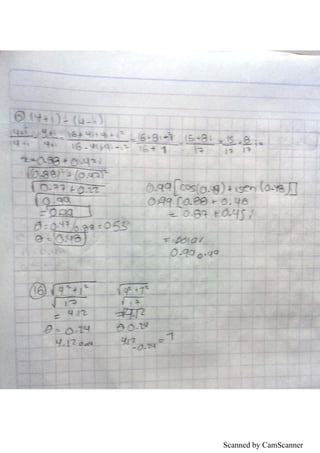 ⑥ (4+i) ÷ (4-i)
4+i/4-i · 4+i/4+i = 16+4i+4i+i²/16-4i+4i-i² = 16+8i-1/16+1 = 15+8i/17 = 15/17 + 8/17 i =
z = 0.88 + 0.47i
√(0.88)² + (0.47)²
√0.77 + 0.22
√0.99
= 0.99
θ = 0.47/0.88 = 0.53
θ = 0.48
0.99 [cos(0.48) + i sen (0.48)]
0.99 [0.88 + 0.46
= 0.87 + 0.45 i
0.99
⑯ √4²+1² √4²+1²
√17 √17
= 4.12 = 4.12
θ = 0.24 θ 0.24
4.12 0.24 4.12 -0.24 = 1
Scanned by CamScanner